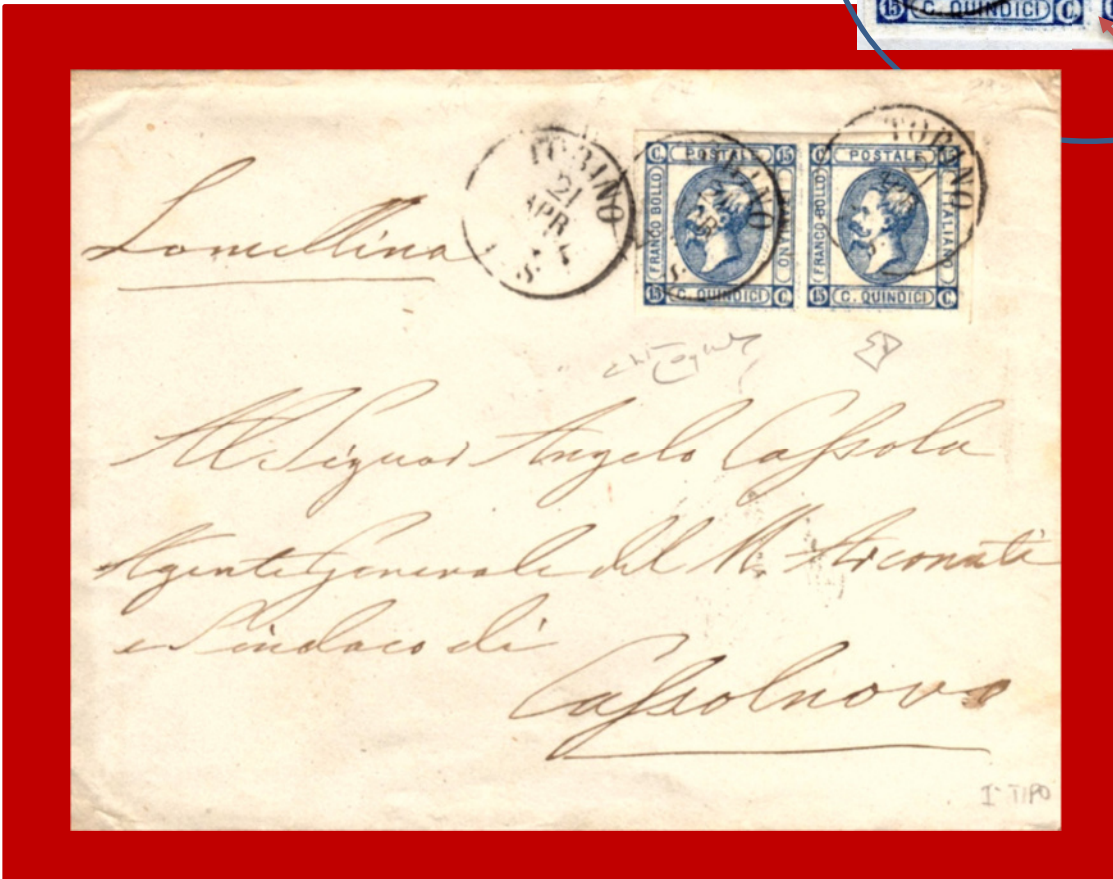 15 C. QUINDICI C.
TORINO
21
APR
TORINO
TORINO
21
APR
C. POSTALE 15
FRANCO BOLLO
ITALIANO
15 C. QUINDICI C.
C. POSTALE 15
FRANCO BOLLO
ITALIANO
15 C. QUINDICI C.
Lomellina
Al Signor Angelo Cassola
Agente Generale del M. Arconati
e Sindaco di
Cassolnovo
I° TIPO